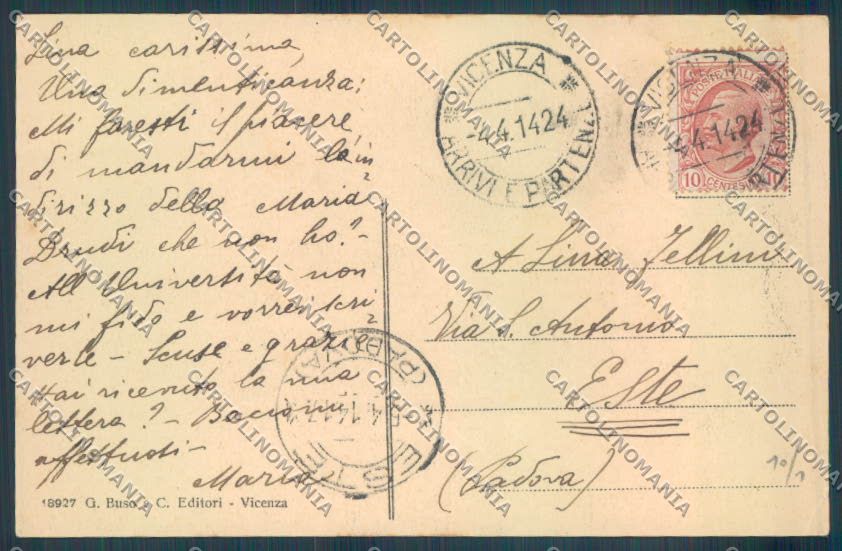 Lina carissima,
Una dimenticanza:
Mi faresti il piacere
di mandarmi l'in=
dirizzo della Maria
Drudi che non ho? -
All'Università non
mi fido e vorrei scri=
verle - Scuse e grazie
Hai ricevuto la mia
lettera? - Bacioni
affettuosi -
Maria
18927 G. Buso & C. Editori - Vicenza
VICENZA
4.4.14 24
ARRIVI E PARTENZE
VICENZA
4.4.14 24
POSTE ITALIANE
10 CENTESIMI 10
A Lina Zellini
Via S. Antonio
Este
(Padova)
ESTE
(PADOVA)
10/1
CARTOLINOMANIA